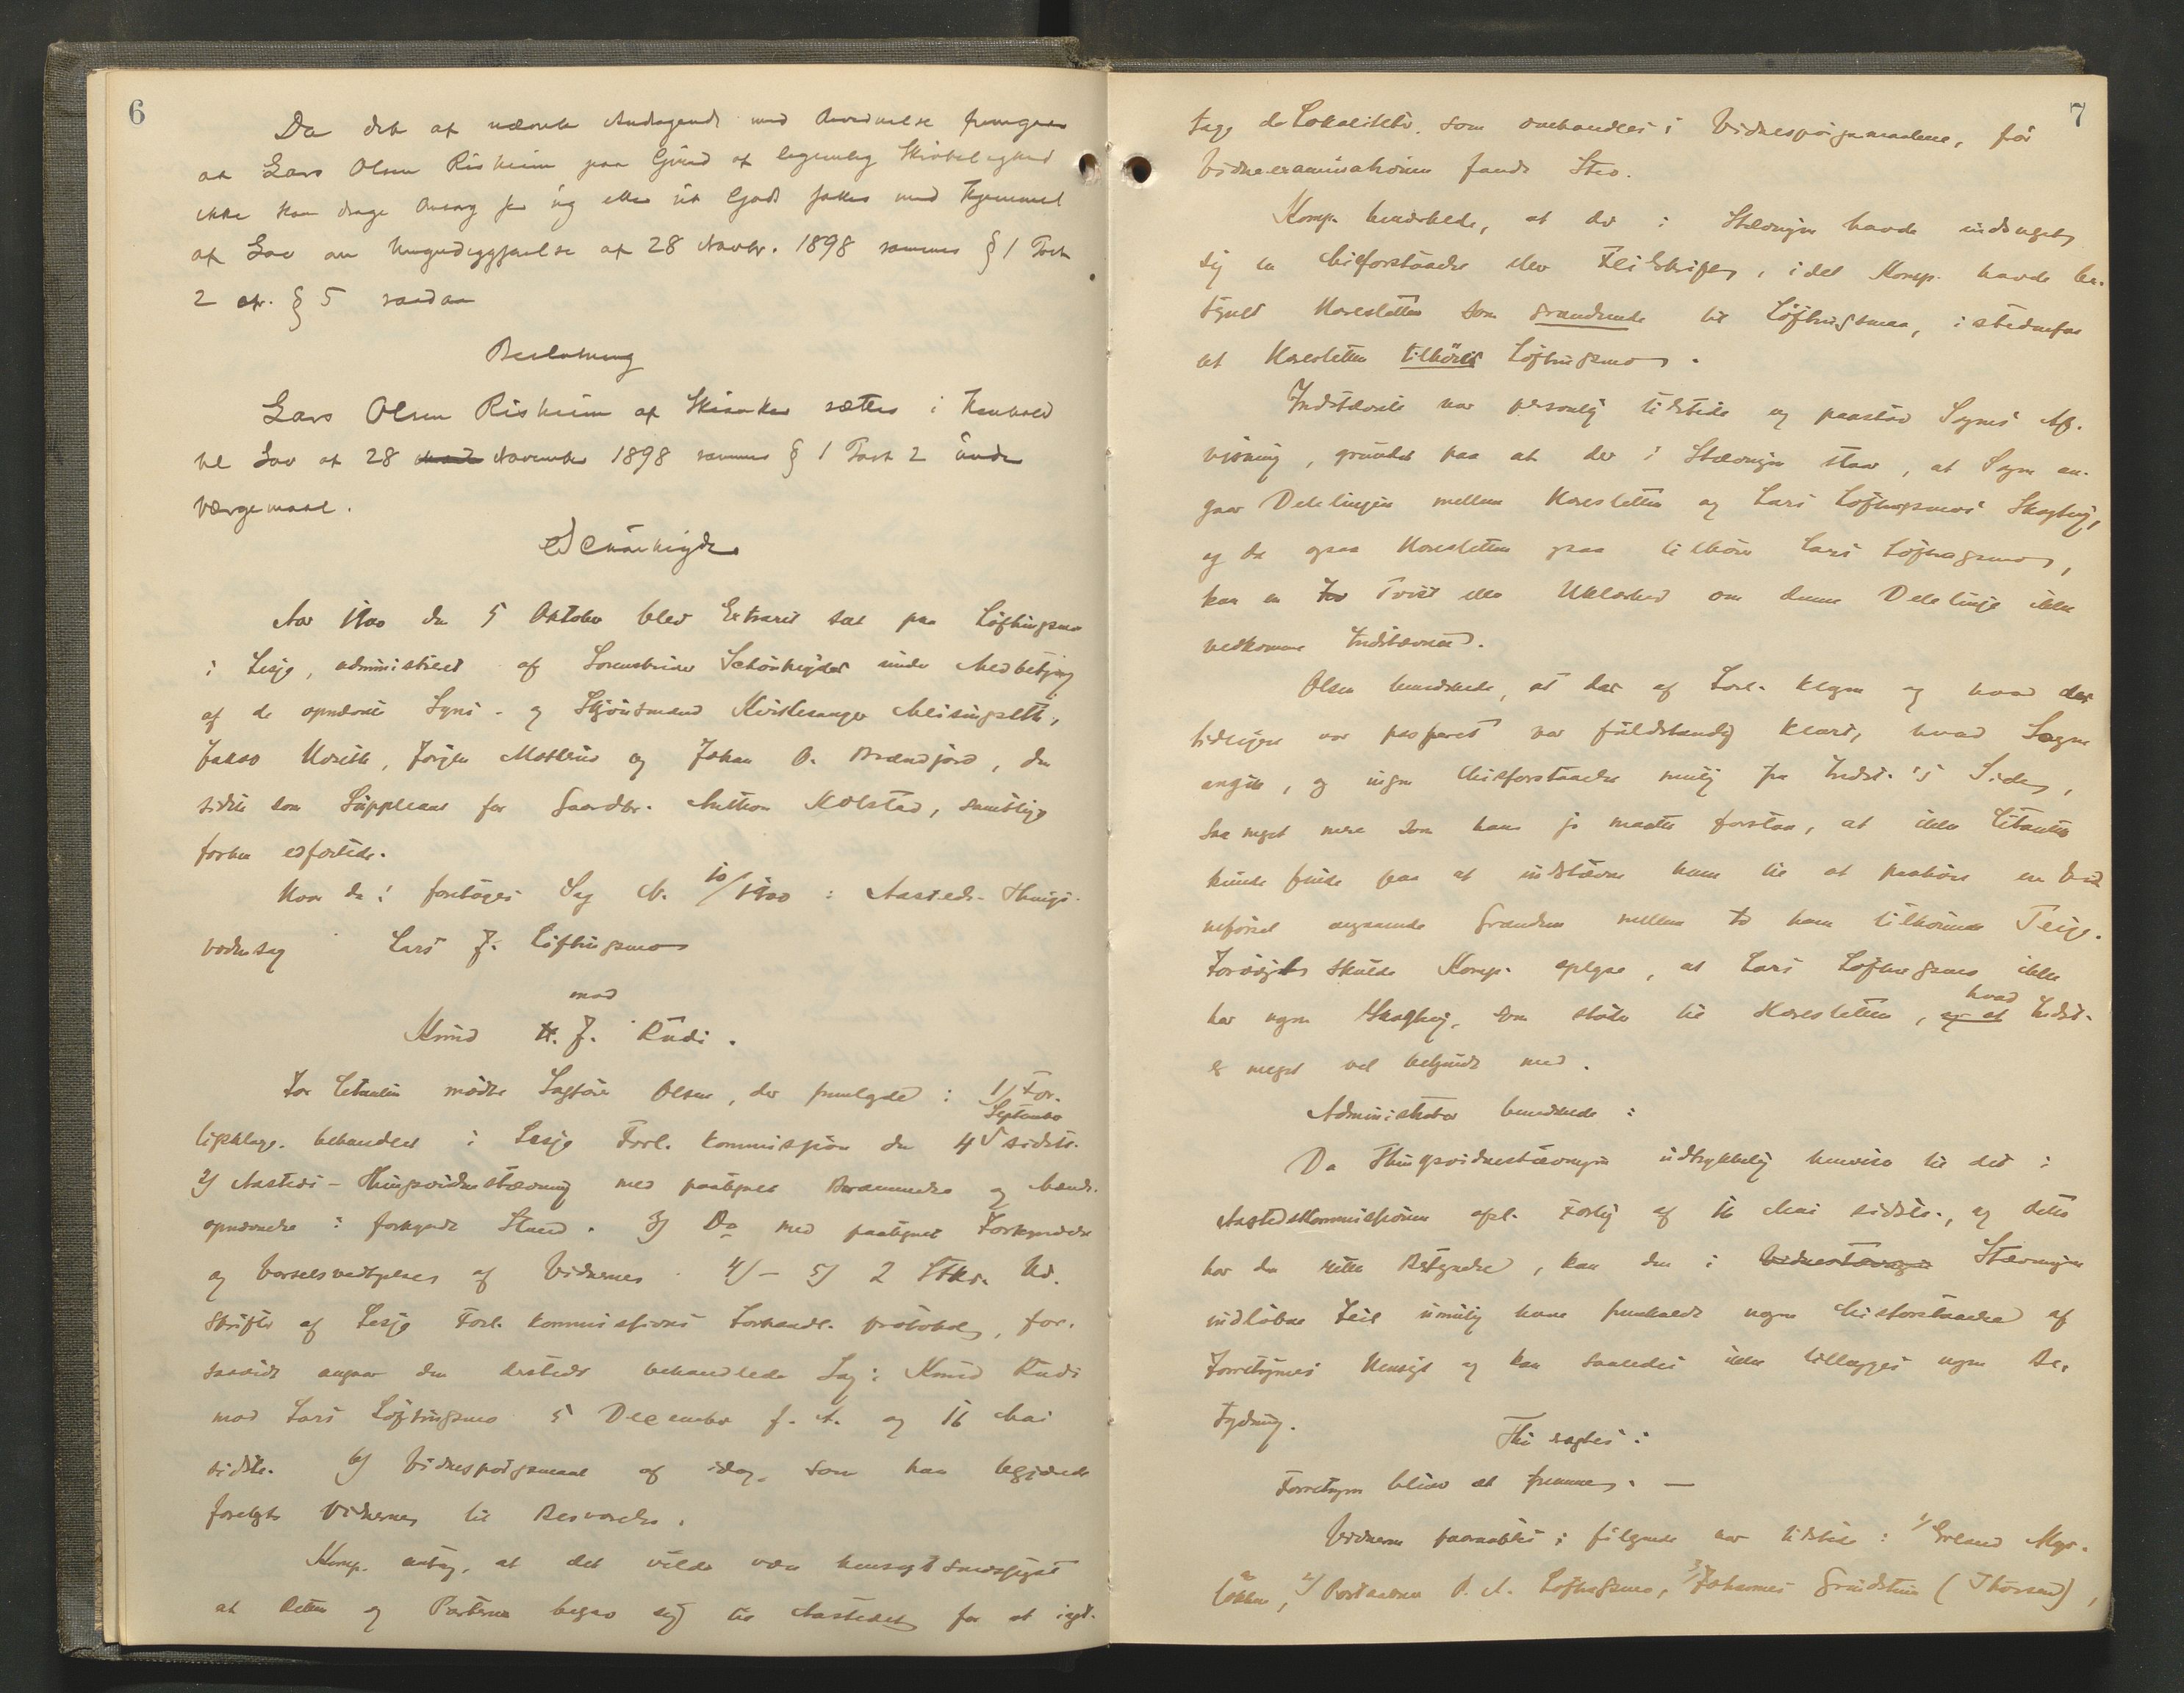 6
Da det af nævnte Andragende med Anvendelse fremgaar
at Lars Olsen Risheim paa Grund af legemlig Skrøbelighed
ikke kan drage Omsorg for sig eller sit Gods fattes med Hjemmel
af Lov om Umyndiggjørelse af 28 Novbr. 1898 sammes § 1 Post
2 cfr. § 5 saadan
Beslutning
Lars Olsen Risheim af Skiaker sættes i Henhold
til Lov af 28 November 1898 sammes § 1 Post 2 under
Værgemaal.
Schönheyder
Aar 1900 den 5 Oktober blev Extraret sat paa Løftingsmo
i Lesje, administreret af Sorenskriver Schönheyder under Medbetjening
af de opnævnte Syns- og Skjønsmænd Kirkesanger Meisingseth,
Jakob Norseth, Jørgen Mathius og Johan O. Brændjord, den
sidste som Suppleant for Gaardbr. Anthon Kolstad, samtlige
forhen edfæstede.
Hvor da: foretoges Sag N. 10/1900: Aasteds-Things-
vidnesag Lars J. Løftingsmo
mod
Knud H. J. Rudi.
For Citanten mødte Sagfører Olsen, der fremlagde: 1) For-
ligsklage behandlet i Lesje Forl. kommission den 4 September sidstl.
2) Aasteds-Thingsvidnestævning med paategnet Berammelse og Mænds-
opnævnelse i forkyndt Stand. 3) Do med paategnet Forkyndelse
og Varselsvedtagelse af Vidnerne. 4) - 5) 2 Stkr. Ud-
skrifter af Lesje Forl. kommissions Forhandl. protokol, for-
saavidt angaar den dersteds behandlede Sag: Knud Rudi
mod Lars Løftingsmo 5 December f. A. og 16 Mai
sidstl. 6) Vidnespørgsmaal af idag, som han begjærede
forelagt Vidnerne til Besvarelse.
Komp. antog, at det vilde være hensigtsmæssigst
at Retten og Parterne begav sig til Aastedet for at iagt-
7
tage de Lokaliteter, som omhandles i Vidnespørgsmaalene, før
Vidneexaminationen fandt Sted.
Komp. bemærkede, at der i Stævningen havde indsneget
sig en Misforstaaelse eller Feilskrift, idet Komp. havde be-
tegnet Horesletten som grændsende til Løftingsmo, istedenfor
at Horesletten tilhører Løftingsmo.
Indstævnte var personlig tilstede og paastod Sagens Af-
visning, grundet paa at der i Stævningen staar, at Sagen an-
gaar Delelinjen mellem Horesletten og Lars Løftingsmos Skogteig,
og da ogsaa Horesletten ogsaa tilhører Lars Løftingsmo,
kan en Tvist eller Uklarhed om denne Delelinje ikke
vedkomme Indstævnte.
Olsen bemærkede, at det af Forl. klagen og hvad der
tidligere var passeret var fuldstændig klart, hvad Sagen
angik, og ingen Misforstaaelse mulig fra Indst.'s Side,
saa meget mere som han jo maatte forstaa, at ikke Citanten
kunde finde paa at indstævne ham til at paahøre en Vid-
neførsel angaaende Grændsen mellem to ham tilhørende Teige.
Forøvrigt skulde Komp. oplyse, at Lars Løftingsmo ikke
har nogen Skogteig, som støder til Horesletten, hvad Indst.
er meget vel bekjendt med.
Administrator bemærkede:
Da Thingsvidnestævningen udtrykkelig henviser til det i
Aastedskommissionen opl. Forlig af 16 Mai sidstl., og dette
har den rette Betegnelse, kan den i Stævningen
indløbne Feil umulig have fremkaldt nogen Misforstaaelse af
Forretningens Hensigt og kan saaledes ikke tillægges nogen Be-
tydning.
Thi sagtes:
Forretningen bliver at fremme. —
Vidnerne paaraabtes: følgende var tilstede: 1) Erland Myr-
løkken, 2) Postaabner P. A. Løftingsmo, 3) Johannes Grundstein (Thorsen),